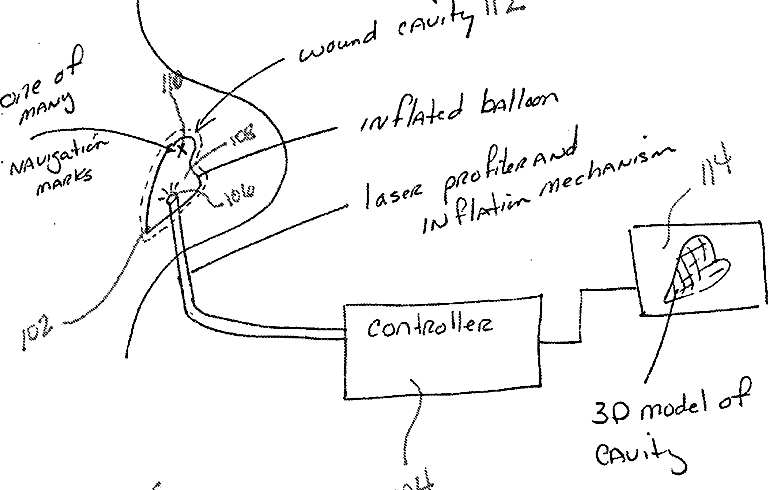 wound cavity 112
110
one of
many
navigation
marks
inflated balloon
108
laser profiler and
inflation mechanism
106
114
102
controller
3D model of
cavity